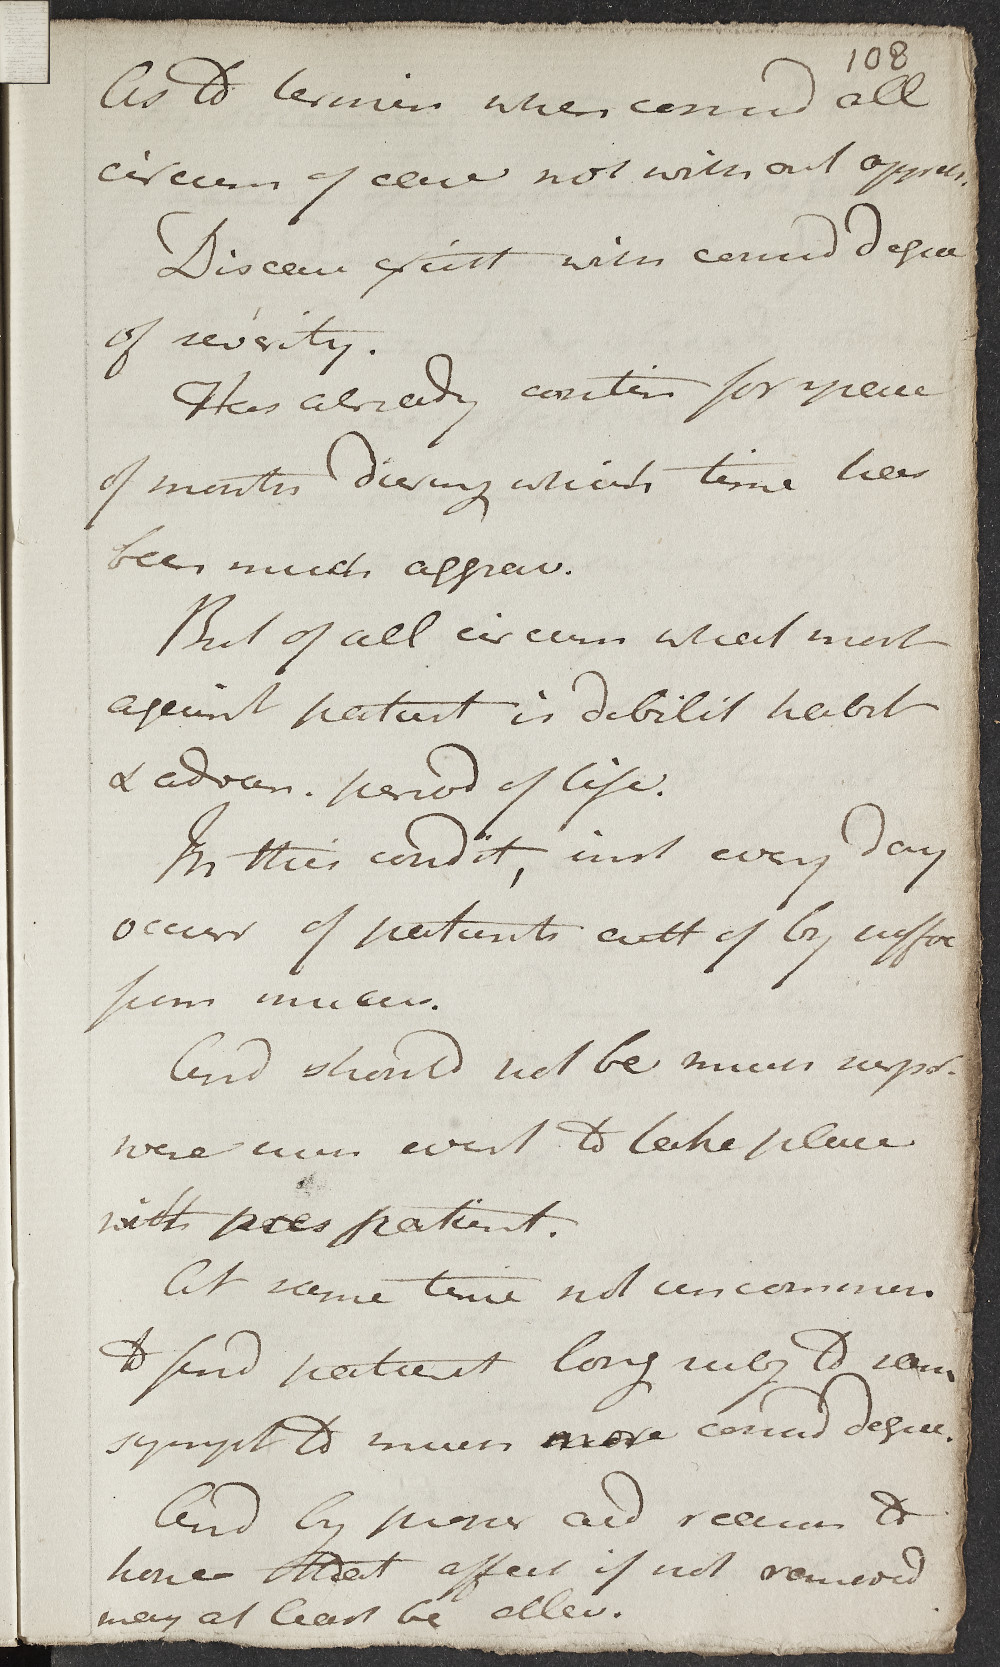 108
As to termin when consid all
circum of case not without appreh.
Disease exist with consid degree
of severity.
Has already contin for space
of months during which time has
been much aggrav.
But of all circum what most
against patient is debilit habit
& advan. period of life.
In this condit, inst every day
occurr of patients cutt of by suffoc
from mucus.
And should not be much surpr.
were such event to take place
with pres patient.
At same time not uncommon
to find patient long subj to same
sympt to much more consid degree.
And by proper aid reason to
hope that affect if not removed
may at least be allev.